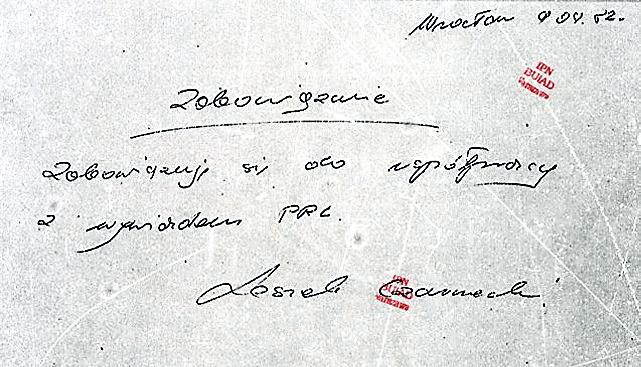 Wrocław 9 04. 82.
IPN
BUIAD
Zobowiązanie
Zobowiązuję się do współpracy
z wywiadem PRL.
Leszek Czarnecki
IPN
BUIAD